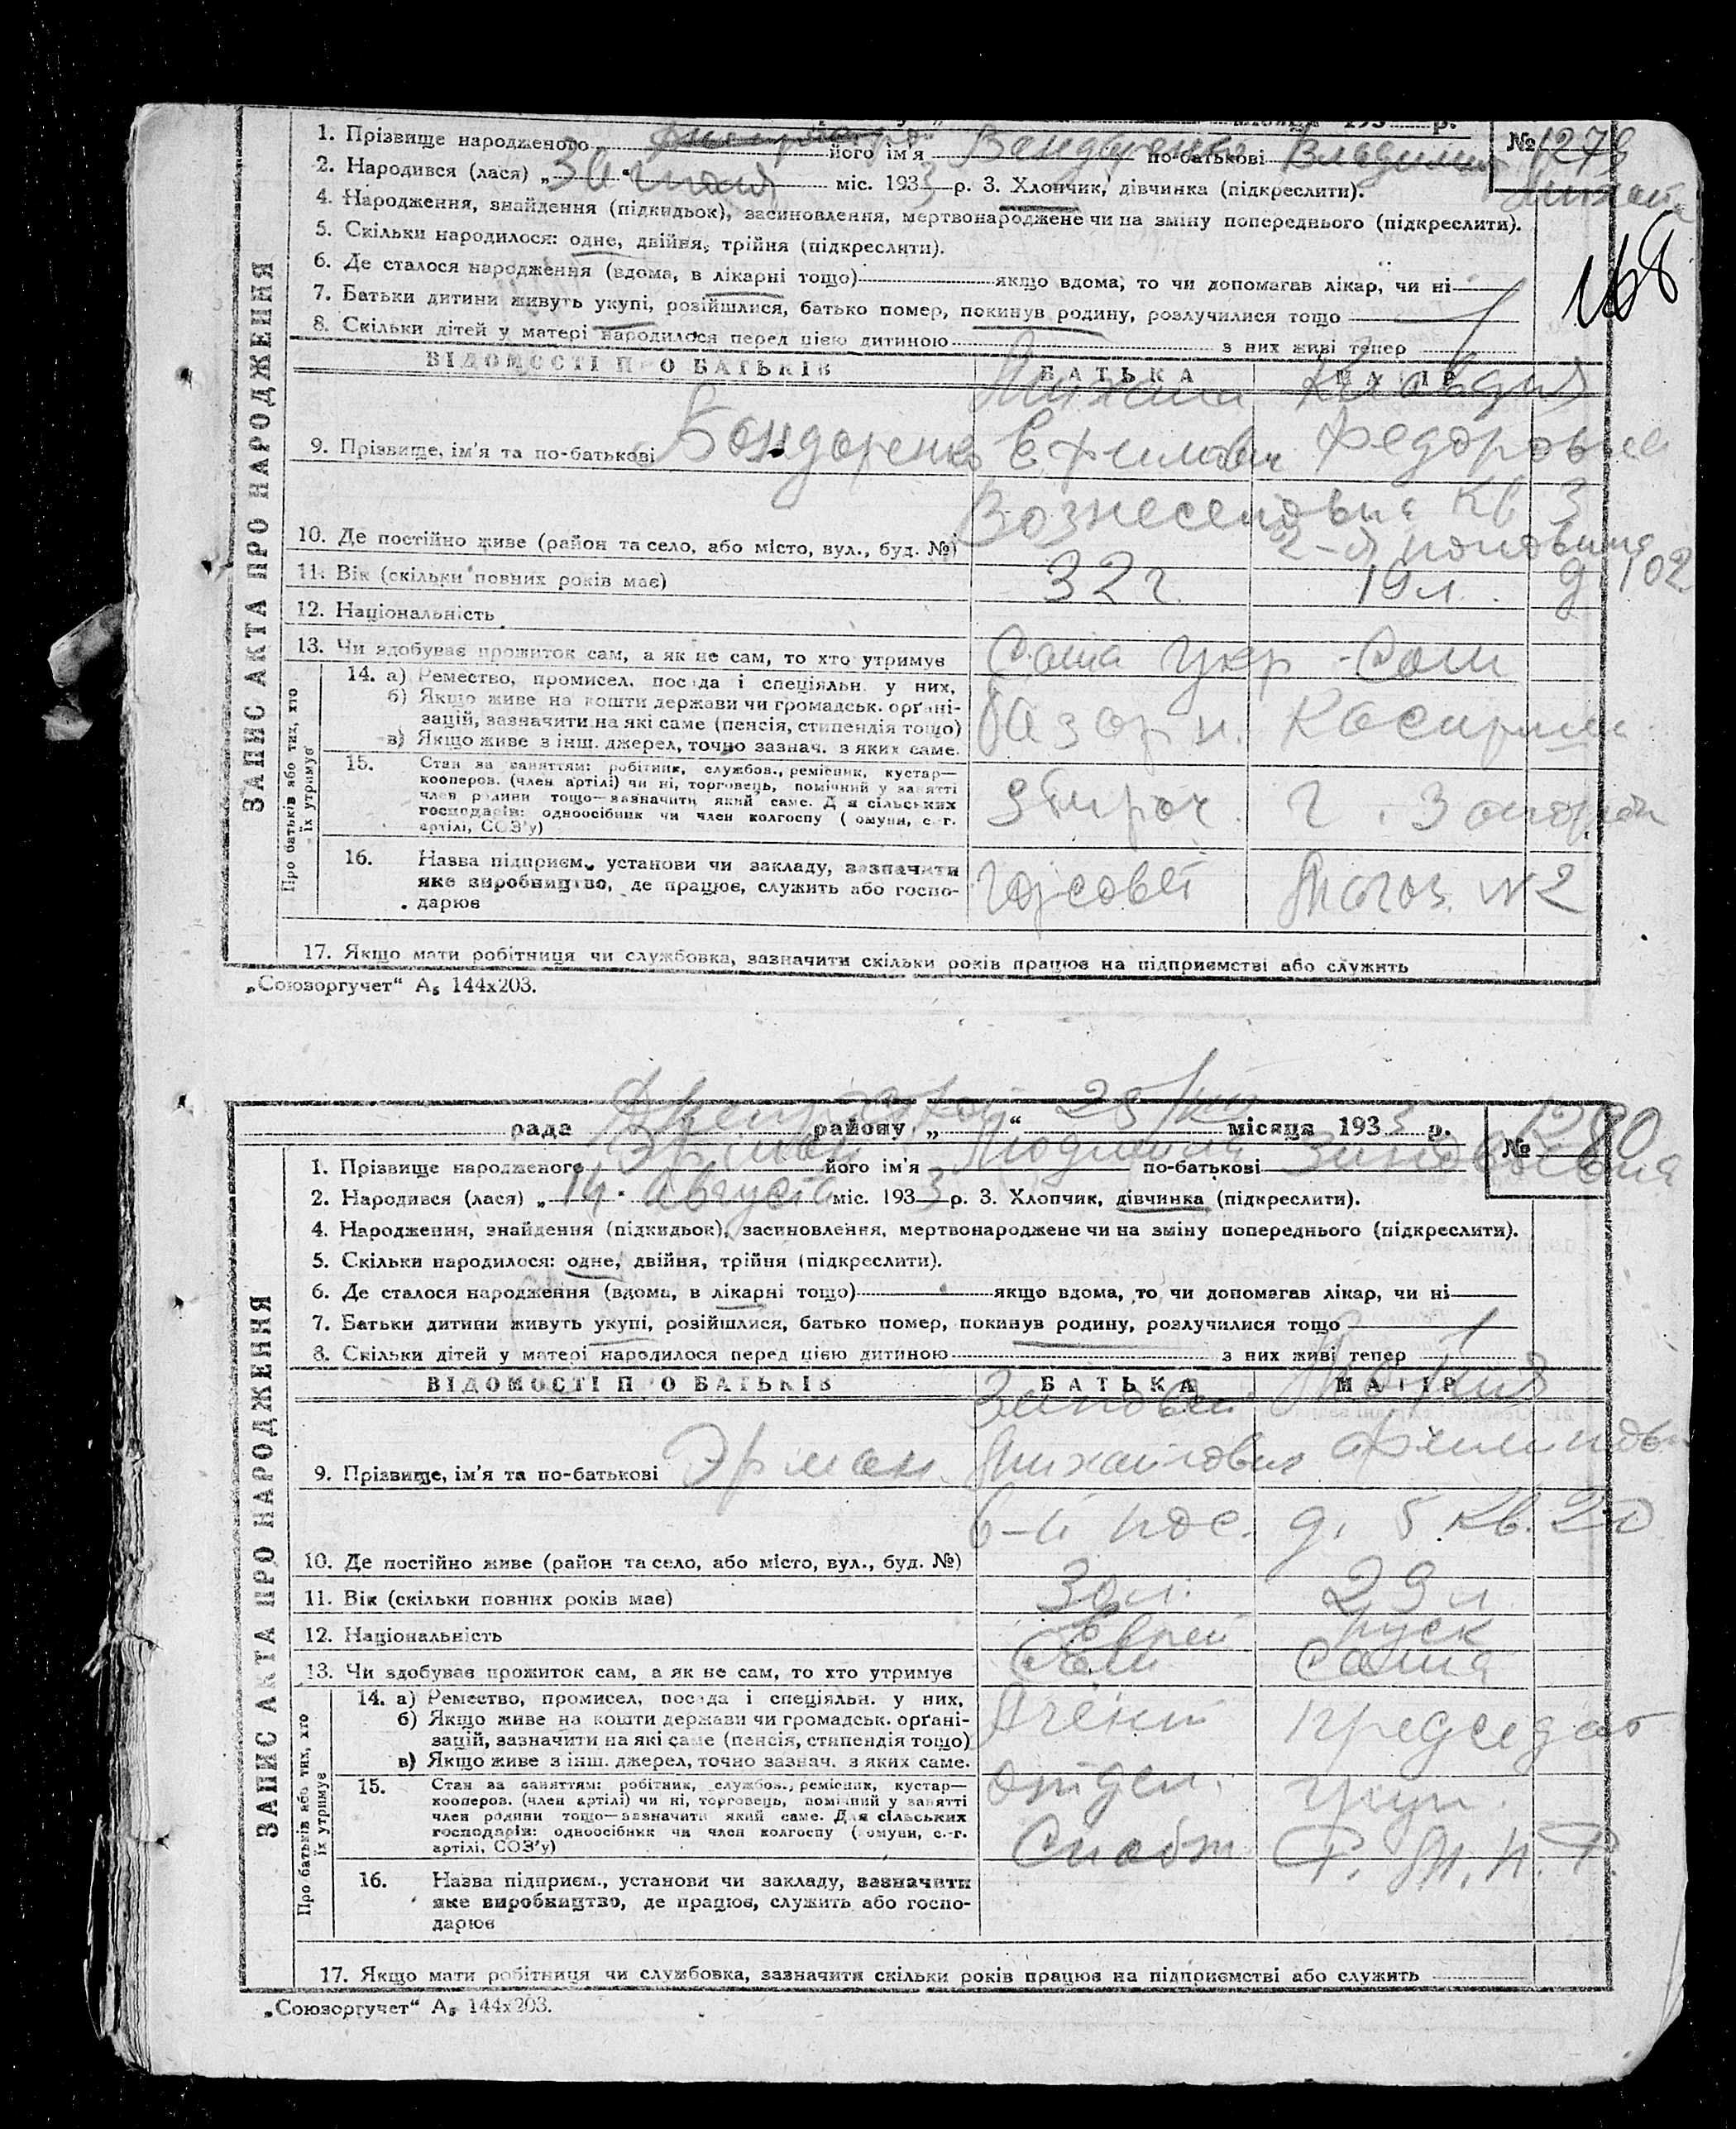 № 1279
1. Прізвище народженого його ім'я Бондаренко по-батькові Владимир
2. Народився (лася) „30“ июля міс. 1933 р. 3. Хлопчик, дівчинка (підкреслити).
4. Народження, знайдення (підкидьок), засиновлення, мертвонароджене чи на зміну попереднього (підкреслити).
5. Скільки народилося: одне, двійня, трійня (підкреслити).
168
6. Де сталося народження (вдома, в лікарні тощо) якщо вдома, то чи допомагав лікар, чи ні
7. Батьки дитини живуть укупі, розійшлися, батько помер, покинув родину, розлучилися тощо
8. Скільки дітей у матері народилося перед цією дитиною з них живі тепер
ЗАПИС АКТА ПРО НАРОДЖЕННЯ
ВІДОМОСТІ ПРО БАТЬКІВ БАТЬКА МАТІР
Михаил Клавдия
9. Прізвище, ім'я та по-батькові Бондаренко Ефимович Федоровна
Вознесеновка кв 3
10. Де постійно живе (район та село, або місто, вул., буд. №)
д 102
11. Вік (скільки повних років має) 32 г. 19 л.
12. Національність
13. Чи здобуває прожиток сам, а як не сам, то хто утримує
Про батьків або тих, хто їх утримує
14. а) Ремество, промисел, посада і спеціяльн. у них,
б) Якщо живе на кошти держави чи громадськ. орґані-
зацій, зазначити на які саме (пенсія, стипендія тощо)
в) Якщо живе з інш. джерел, точно зазнач. з яких саме.
15. Стан за заняттям: робітник, службов., ремісник, кустар—
кооперов. (член артілі) чи ні, торговець, помічний у занятті
член родини тощо—зазначити який саме. Для сільських
господарів: одноосібник чи член колгоспу (комуни, с.-г.
артілі, СОЗ'у)
16. Назва підприєм., установи чи закладу, зазначити
яке виробництво, де працює, служить або госпо-
дарює
Горсовет Магаз. №2
17. Якщо мати робітниця чи службовка, зазначити скільки років працює на підприємстві або служить
„Союзоргучет“ А₅ 144х203.
рада района, „ “ 25/VIII місяця 1933 р. № 1280
1. Прізвище народженого Эрман його ім'я Людмила по-батькові Зиновьевна
2. Народився (лася) „14“ августа міс. 1933 р. 3. Хлопчик, дівчинка (підкреслити).
4. Народження, знайдення (підкидьок), засиновлення, мертвонароджене чи на зміну попереднього (підкреслити).
5. Скільки народилося: одне, двійня, трійня (підкреслити).
6. Де сталося народження (вдома, в лікарні тощо) якщо вдома, то чи допомагав лікар, чи ні
7. Батьки дитини живуть укупі, розійшлися, батько помер, покинув родину, розлучилися тощо
8. Скільки дітей у матері народилося перед цією дитиною з них живі тепер 1
ЗАПИС АКТА ПРО НАРОДЖЕННЯ
ВІДОМОСТІ ПРО БАТЬКІВ БАТЬКА МАТІР
Зиновий
9. Прізвище, ім'я та по-батькові Эрман Михайлович
6-й пос. д. 5 кв. 20
10. Де постійно живе (район та село, або місто, вул., буд. №)
11. Вік (скільки повних років має) 30 л. 29 л.
12. Національність Еврей руск
13. Чи здобуває прожиток сам, а як не сам, то хто утримує Сам Сама
Про батьків або тих, хто їх утримує
14. а) Ремество, промисел, посада і спеціяльн. у них,
б) Якщо живе на кошти держави чи громадськ. орґані-
зацій, зазначити на які саме (пенсія, стипендія тощо)
в) Якщо живе з інш. джерел, точно зазнач. з яких саме.
Агент председат
15. Стан за заняттям: робітник, службов., ремісник, кустар—
кооперов. (член артілі) чи ні, торговець, помічний у занятті
член родини тощо—зазначити який саме. Для сільських
господарів: одноосібник чи член колгоспу (комуни, с.-г.
артілі, СОЗ'у)
отдел. груп.
Снабж
16. Назва підприєм., установи чи закладу, зазначити
яке виробництво, де працює, служить або госпо-
дарює
17. Якщо мати робітниця чи службовка, зазначити скільки років працює на підприємстві або служить
„Союзоргучет“ А₅ 144х203.